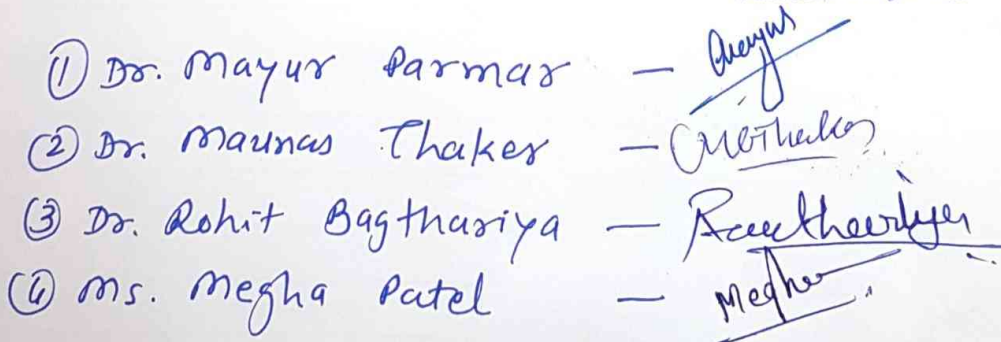 ① Dr. Mayur Parmar —
② Dr. Maunas Thaker — 
③ Dr. Rohit Bagthariya —
④ Ms. Megha Patel — Megha